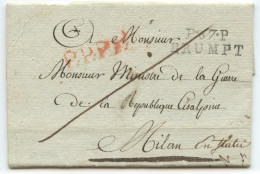 A Monsieur
P.67.P
BRUMPT
P.P.P.P.
Monsieur Ministre de la Guerre
de la Republique Cisalpine
Milan en Italie